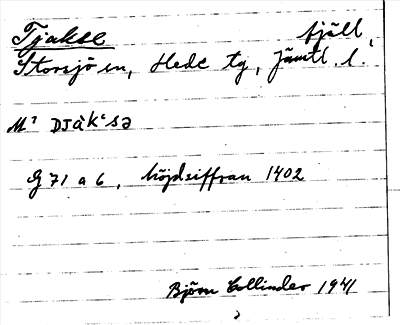 Tjakse fjäll,
Storsjö sn, Hede tg, Jämtl. l.
M¹ DJàk‘sə
G 71 a 6, höjdsiffran 1402
Björn Collinder 1941